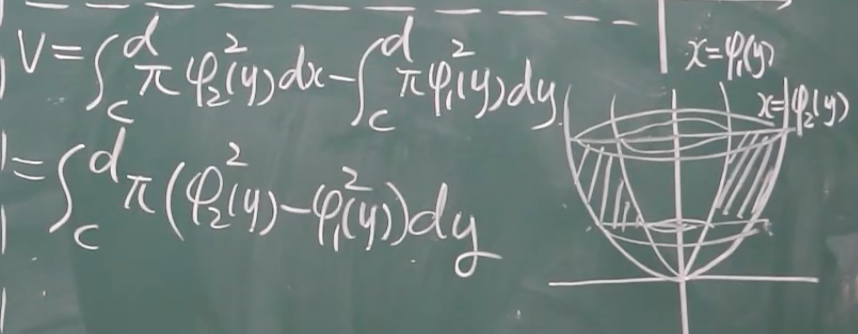 V=∫_c^d πφ₂²(y)dx-∫_c^d πφ₁²(y)dy.
=∫_c^d π(φ₂²(y)-φ₁²(y))dy
x=φ₁(y)
x=φ₂(y)